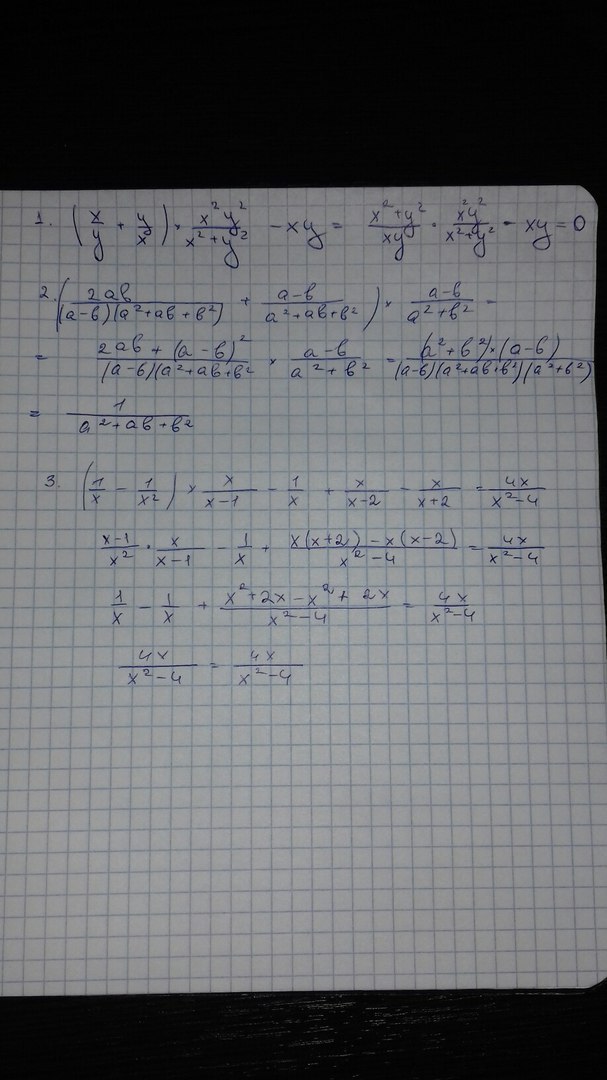 1. (x/y + y/x) × x²y²/(x²+y²) - xy = (x²+y²)/xy · x²y²/(x²+y²) - xy = 0
2. (2ab/((a-b)(a²+ab+b²)) + (a-b)/(a²+ab+b²)) × (a-b)/(a²+b²) =
= (2ab + (a-b)²)/((a-b)(a²+ab+b²) × (a-b)/(a²+b²) = ((a²+b²)×(a-b))/((a-b)(a²+ab+b²)(a²+b²))
= 1/(a²+ab+b²)
3. (1/x - 1/x²) × x/(x-1) - 1/x + x/(x-2) - x/(x+2) = 4x/(x²-4)
(x-1)/x² · x/(x-1) - 1/x + (x(x+2) - x(x-2))/(x²-4) = 4x/(x²-4)
1/x - 1/x + (x²+2x-x²+2x)/(x²-4) = 4x/(x²-4)
4x/(x²-4) = 4x/(x²-4)